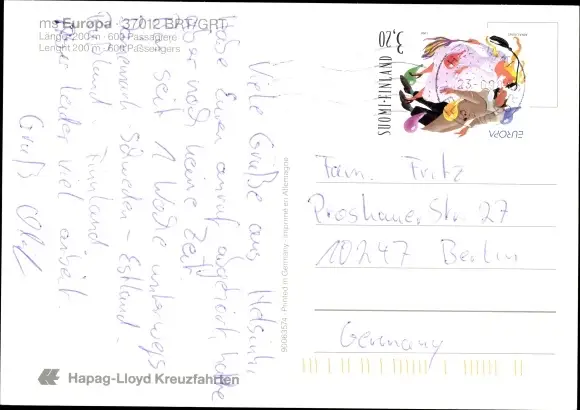 ms Europa · 37012 BRT/GRT
Länge 200 m · 600 Passagiere
Lenght 200 m · 600 Passengers
Viele Grüße aus Helsinki
habe Euren anruf abgehört, habe
aber noch keine Zeit
seit 1 Woche unterwegs
Dänemark - Schweden - Estland -
Rußland - Finnland
aber leider viel arbeit.
Gruß Olaf
90063574 · Printed in Germany · Imprimé en Allemagne
SUOMI-FINLAND
3,20
EUROPA
Fam. Fritz
Proskauer Str. 27
10247 Berlin
Germany
Hapag-Lloyd Kreuzfahrten